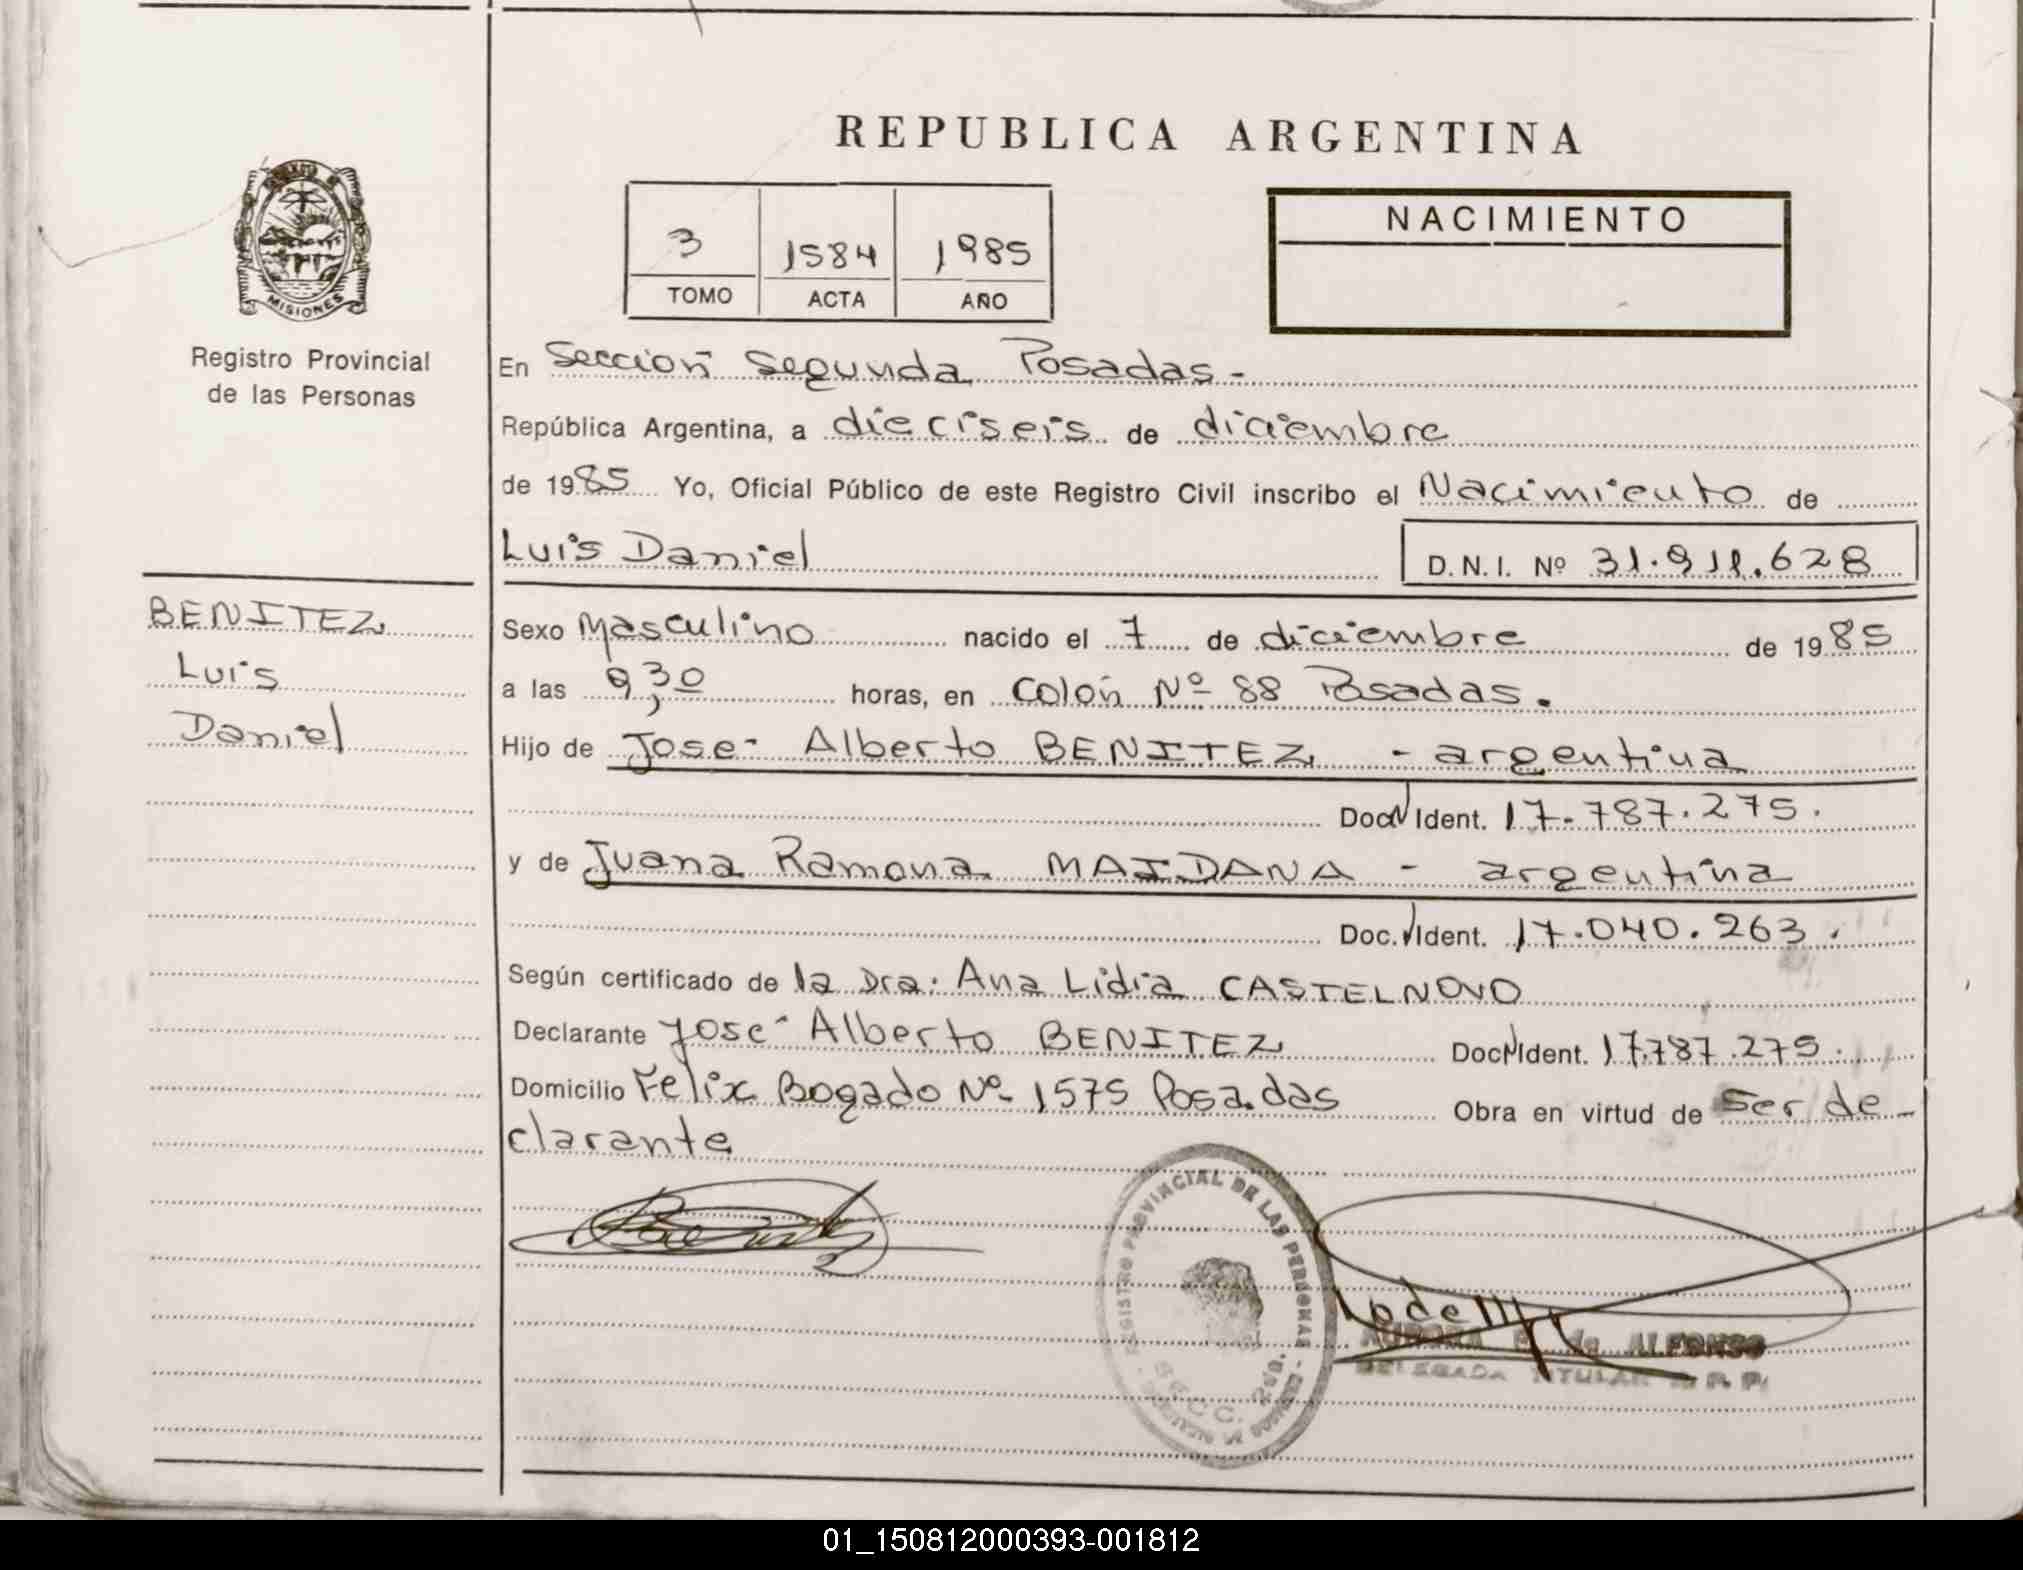 REPUBLICA ARGENTINA
3 1584 1985
TOMO ACTA AÑO
NACIMIENTO
MISIONES
Registro Provincial
de las Personas
En Sección Segunda Posadas.-
República Argentina, a dieciseis de diciembre
de 1985 Yo, Oficial Público de este Registro Civil inscribo el Nacimiento de
Luis Daniel D.N.I. Nº 31.911.628
BENITEZ
Luis
Daniel
Sexo Masculino nacido el 7 de diciembre de 1985
a las 9,30 horas, en Colón Nº 88 Posadas.
Hijo de José Alberto BENITEZ - argentina
Doc. Ident. 17.787.275.
y de Juana Ramona MAIDANA - argentina
Doc. Ident. 17.040.263.
Según certificado de la Dra. Ana Lidia CASTELNOVO
Declarante José Alberto BENITEZ Doc. Ident. 17.787.275.
Domicilio Felix Bogado Nº 1575 Posadas Obra en virtud de Ser de-
clarante
REGISTRO PROVINCIAL DE LAS PERSONAS
SECC. 2da.
AURORA de ALFONSO
DELEGADA TITULAR R. P. P.
01_150812000393-001812